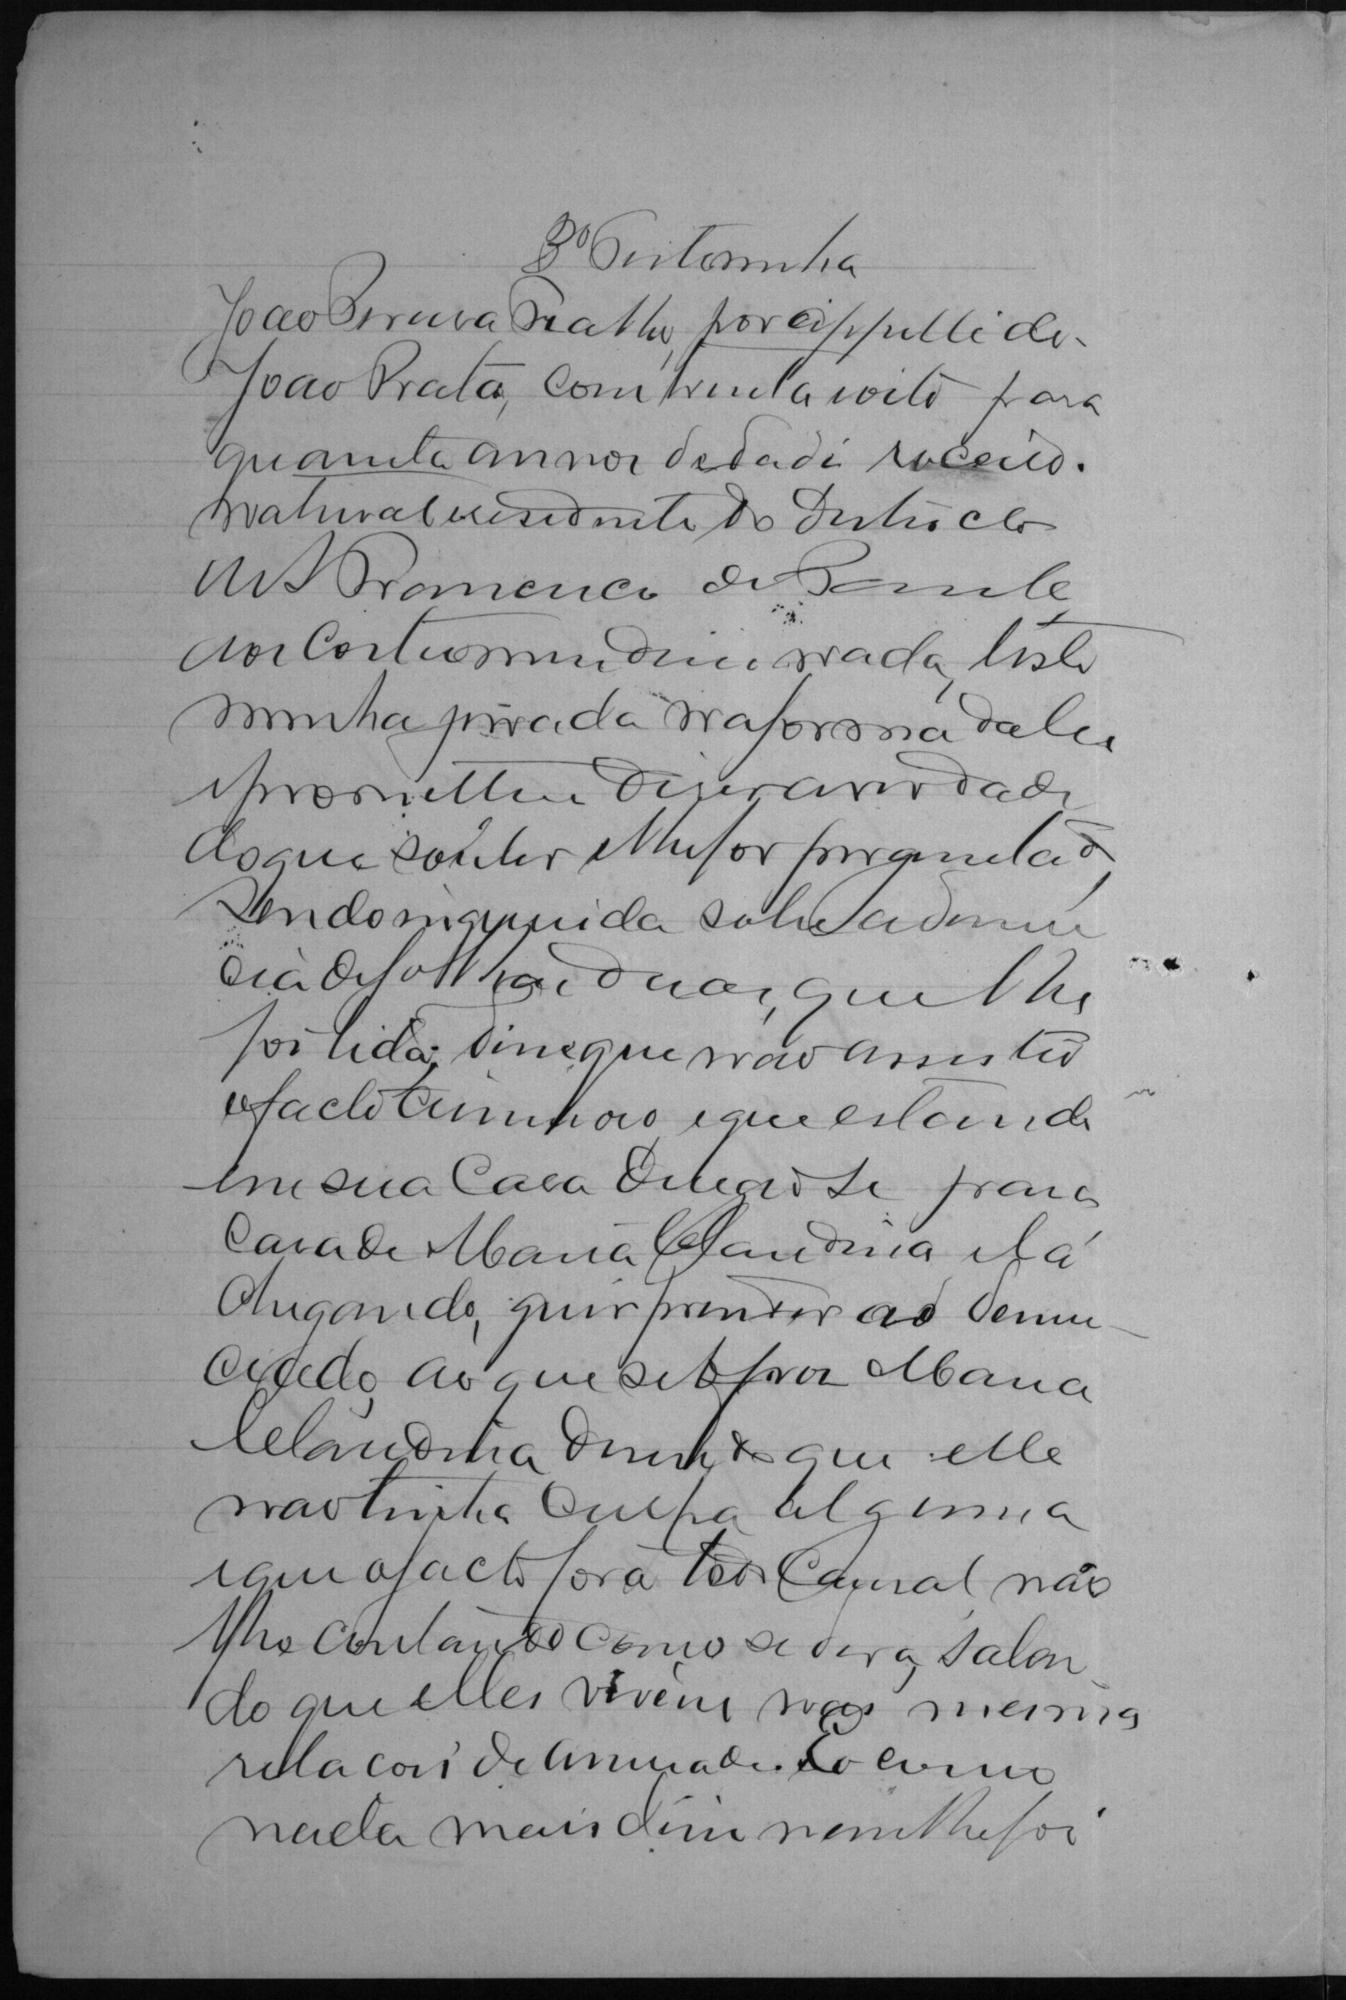 3º Testemunha
João Pereira por appellido
João Prata, com trenta e oito para
quarenta annos de edade roceiro.
natural e residente do Districto
de S Francisco de Paula
aos costumes disse nada, teste
munha jurada na forma da lei
e prometteu diser a verdade
do que souber e lhe for perguntado,
Sendo inquirida sobre a denun
cia de folhas duas, que lhe
foi lida; disse que não assistio
o facto Criminoso e que estando
em sua Casa derigio se para
Casa de Maria Claudina e lá
Chegando, quis prender ao denun
ciado, ao que se oppoz Maria
Claudina disendo que elle
não tinha Culpa alguma
e que o facto fora todo Casual não
lhe contando como se dera, saben
do que elles vivem nas mesmas
relacoes de amisade. E como
nada mais disse nem lhe foi